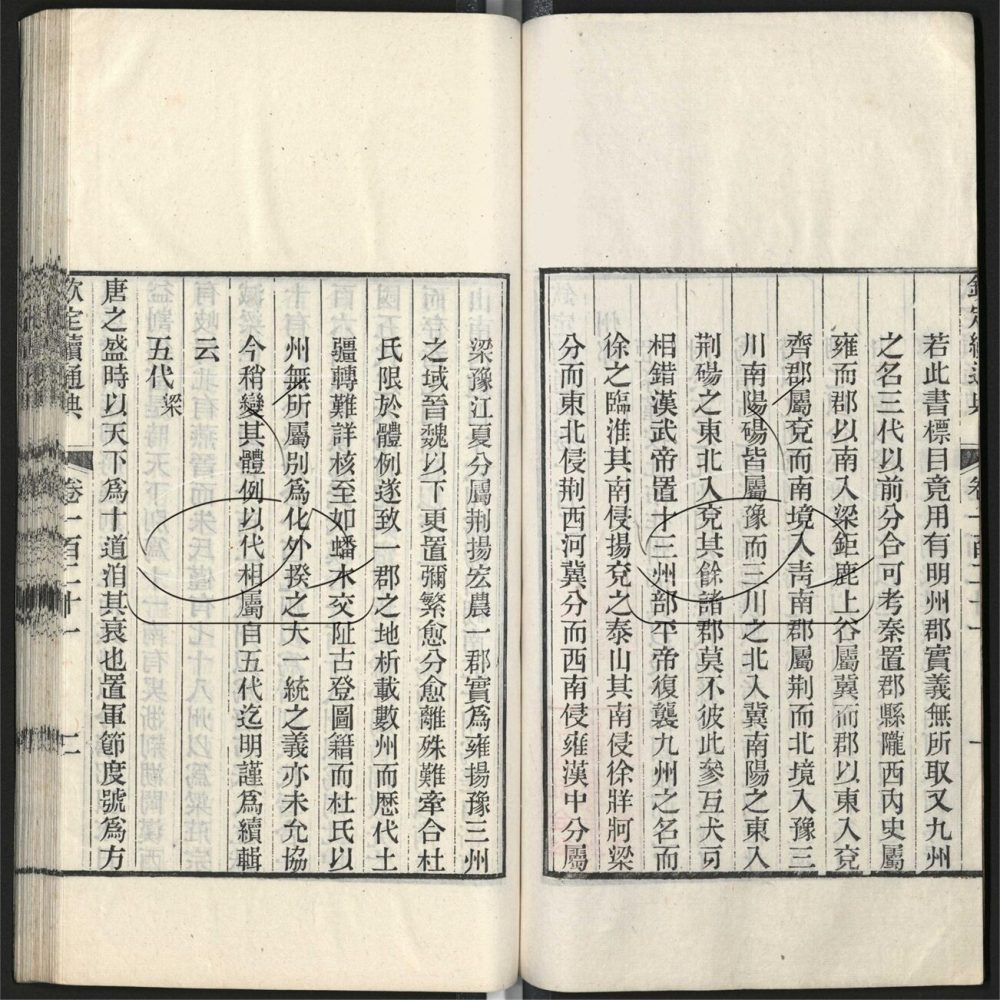 若此書標目竟用有明州郡實義無所取又九州
之名三代以前分合可考秦置郡縣隴西內史屬
雍而郡以南入梁鉅鹿上谷屬冀而郡以東入兗
齊郡屬兗而南境入靑南郡屬荆而北境入豫三
川南陽碭皆屬豫而三川之北入冀南陽之東入
荆碭之東北入兗其餘諸郡莫不彼此參互犬可
相錯漢武帝置十三州部平帝復襲九州之名而
徐之臨淮其南侵揚兗之泰山其南侵徐牂牁梁
分而東北侵荆西河冀分而西南侵雍漢中分屬
梁豫江夏分屬荆揚宏農一郡實爲雍揚豫三州
之域晉魏以下更置彌繁愈分愈離殊難牽合杜
氏限於體例遂致一郡之地析載數州而歷代土
疆轉難詳核至如蟠木交阯古登圖籍而杜氏以
州無所屬別爲化外揆之大一統之義亦未允協
今稍變其體例以代相屬自五代迄明謹爲續輯
云
五代 梁
唐之盛時以天下爲十道洎其衰也置軍節度號爲方
欽定續通典 卷一百二十一 二